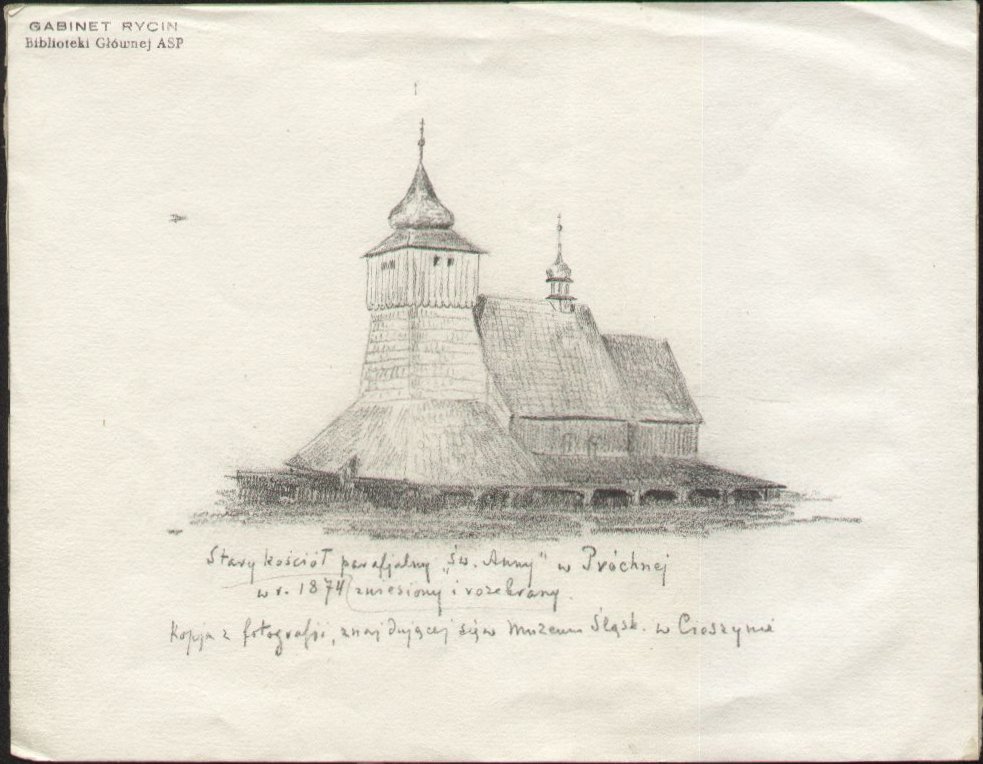 GABINET RYCIN
Biblioteki Głównej ASP
Stary kościół parafjalny „św. Anny" w Próchnej
w r. 1874 zniesiony i rozebrany.
Kopja z fotografji, znajdującej się w Muzeum Śląsk. w Cieszynie